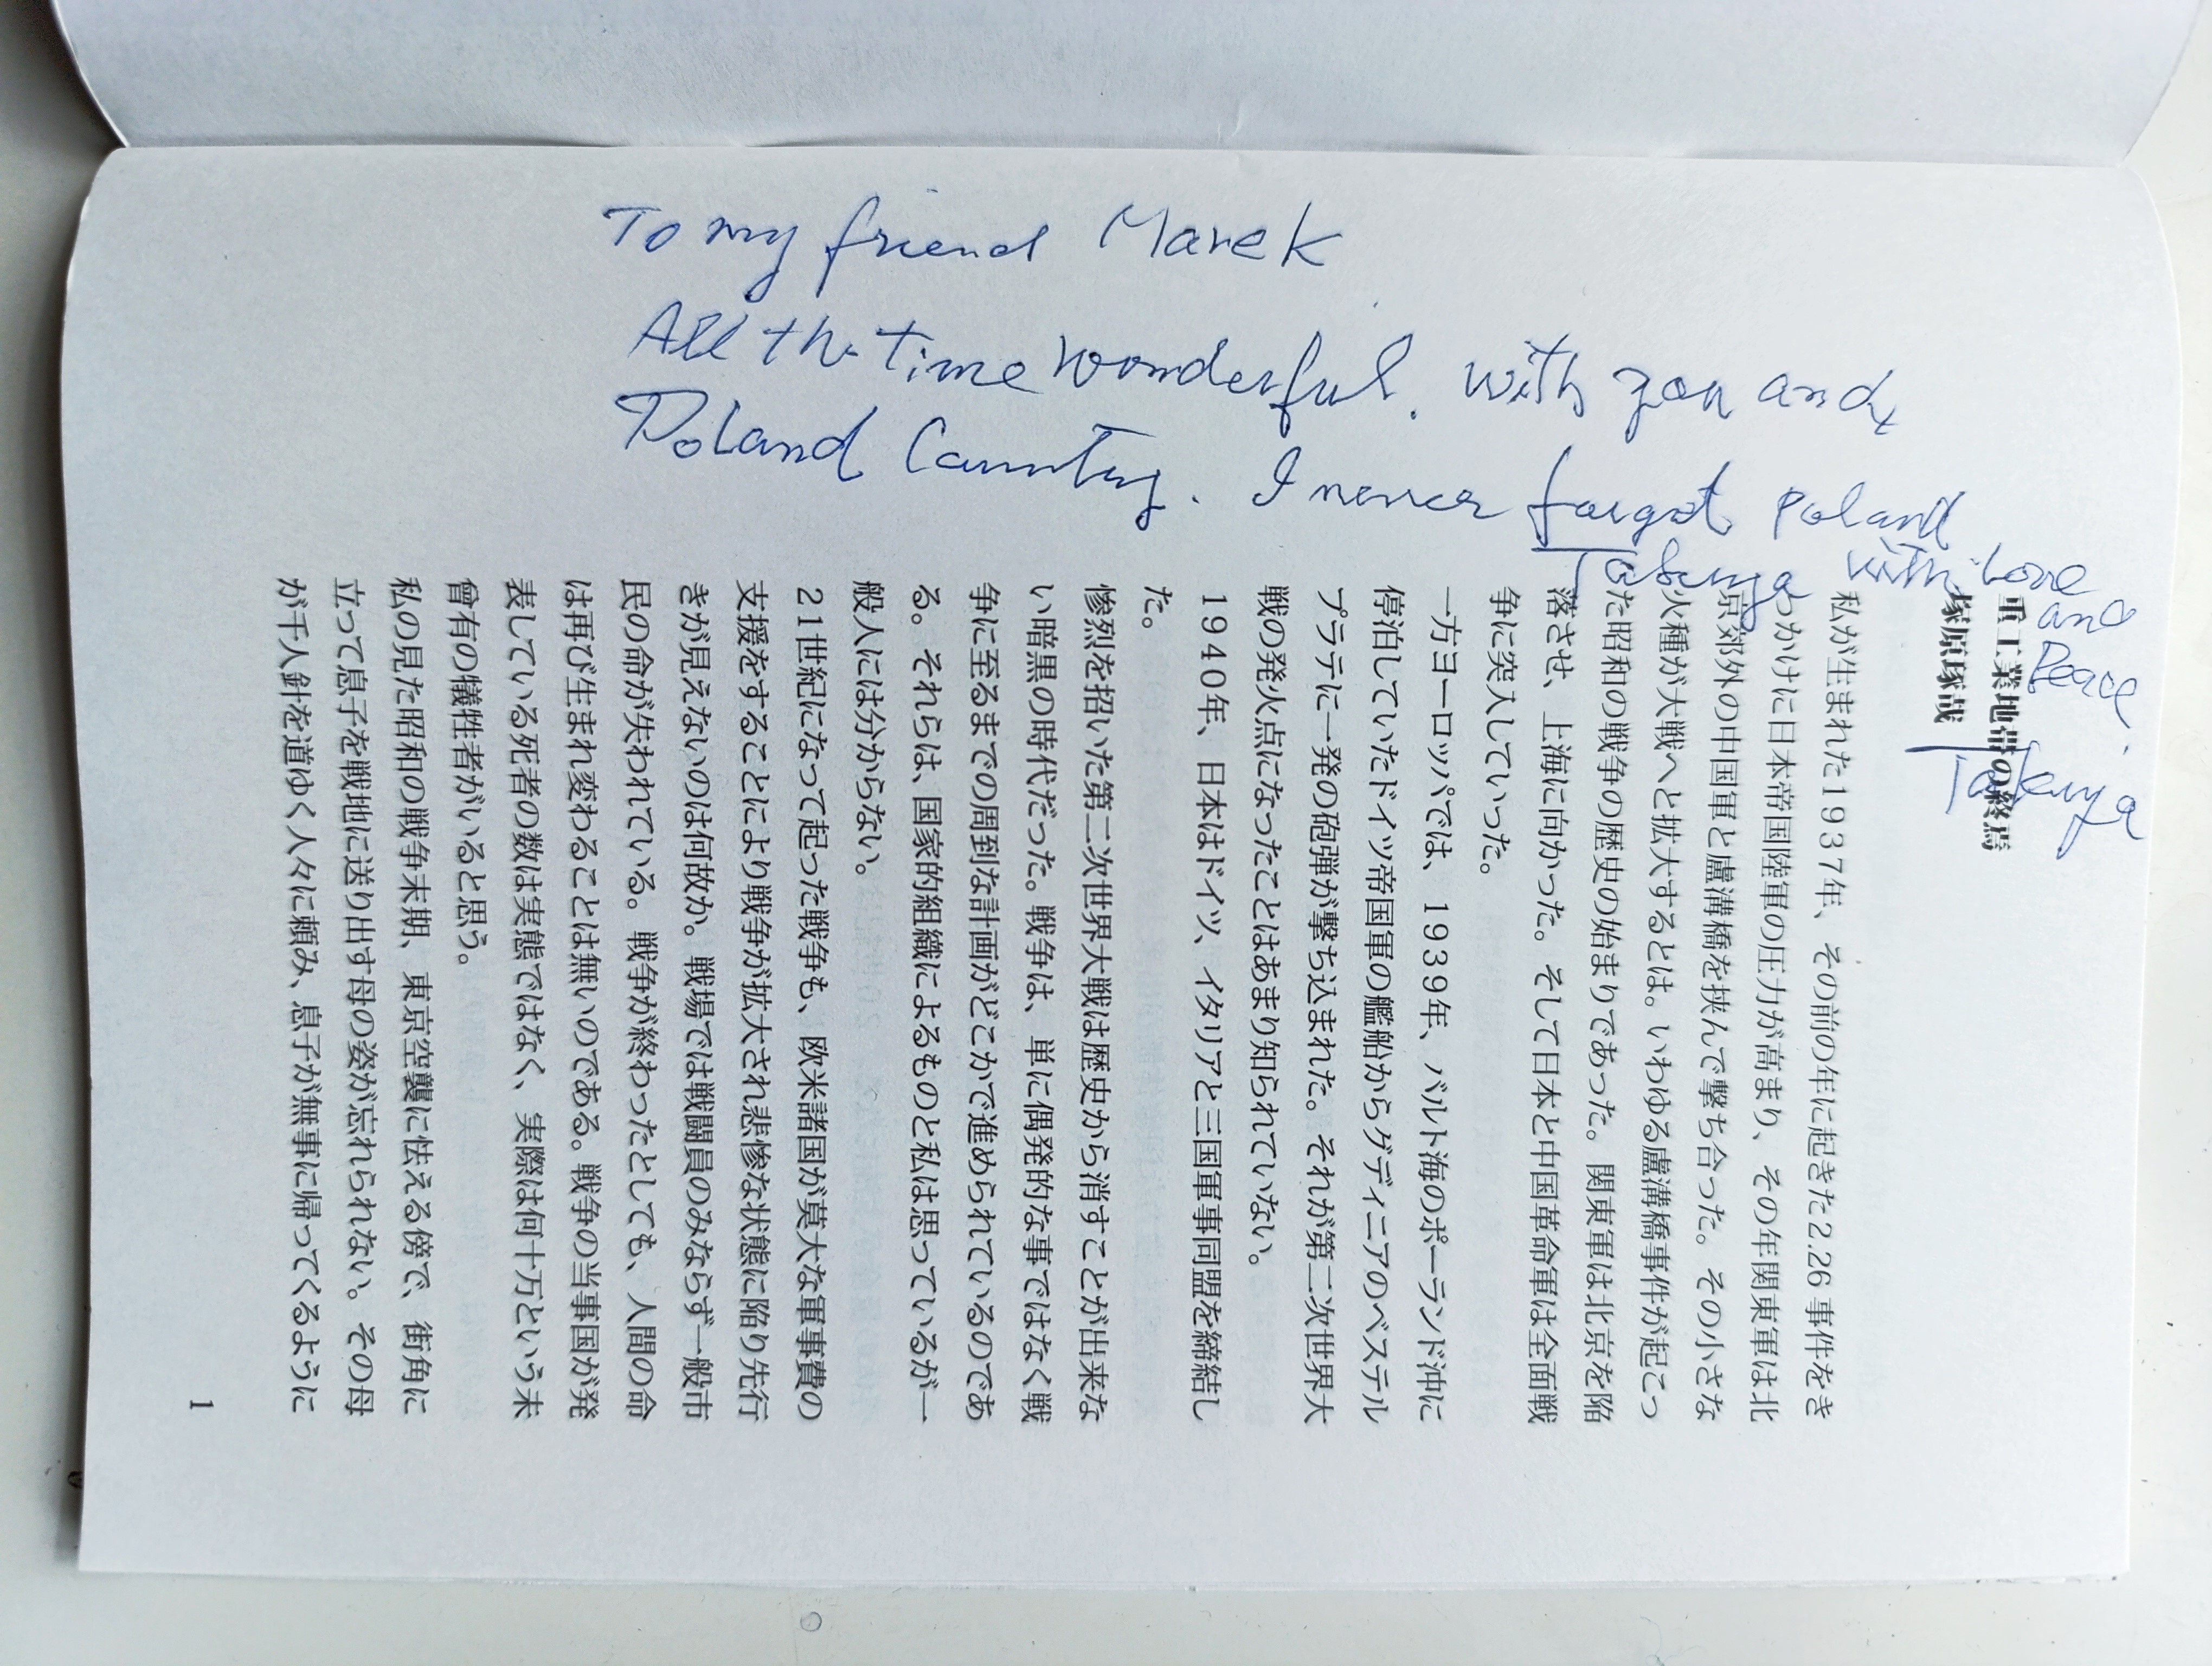 To my friend Marek
All the time wonderful. with you and
Poland Country. I never forget Poland
with Love
and
Peace.
重工業地帯の終焉
塚原琢哉
私が生まれた1937年、その前の年に起きた2.26事件をき
っかけに日本帝国陸軍の圧力が高まり、その年関東軍は北
京郊外の中国軍と盧溝橋を挟んで撃ち合った。その小さな
火種が大戦へと拡大するとは。いわゆる盧溝橋事件が起こっ
た昭和の戦争の歴史の始まりであった。関東軍は北京を陥
落させ、上海に向かった。そして日本と中国革命軍は全面戦
争に突入していった。
一方ヨーロッパでは、1939年、バルト海のポーランド沖に
停泊していたドイツ帝国軍の艦船からグディニアのベステル
プラテに一発の砲弾が撃ち込まれた。それが第二次世界大
戦の発火点になったことはあまり知られていない。
1940年、日本はドイツ、イタリアと三国軍事同盟を締結し
た。
惨烈を招いた第二次世界大戦は歴史から消すことが出来な
い暗黒の時代だった。戦争は、単に偶発的な事ではなく戦
争に至るまでの周到な計画がどこかで進められているのであ
る。それらは、国家的組織によるものと私は思っているが一
般人には分からない。
21世紀になって起った戦争も、欧米諸国が莫大な軍事費の
支援をすることにより戦争が拡大され悲惨な状態に陥り先行
きが見えないのは何故か。戦場では戦闘員のみならず一般市
民の命が失われている。戦争が終わったとしても、人間の命
は再び生まれ変わることは無いのである。戦争の当事国が発
表している死者の数は実態ではなく、実際は何十万という未
曾有の犠牲者がいると思う。
私の見た昭和の戦争末期、東京空襲に怯える傍で、街角に
立って息子を戦地に送り出す母の姿が忘れられない。その母
が千人針を道ゆく人々に頼み、息子が無事に帰ってくるように
1